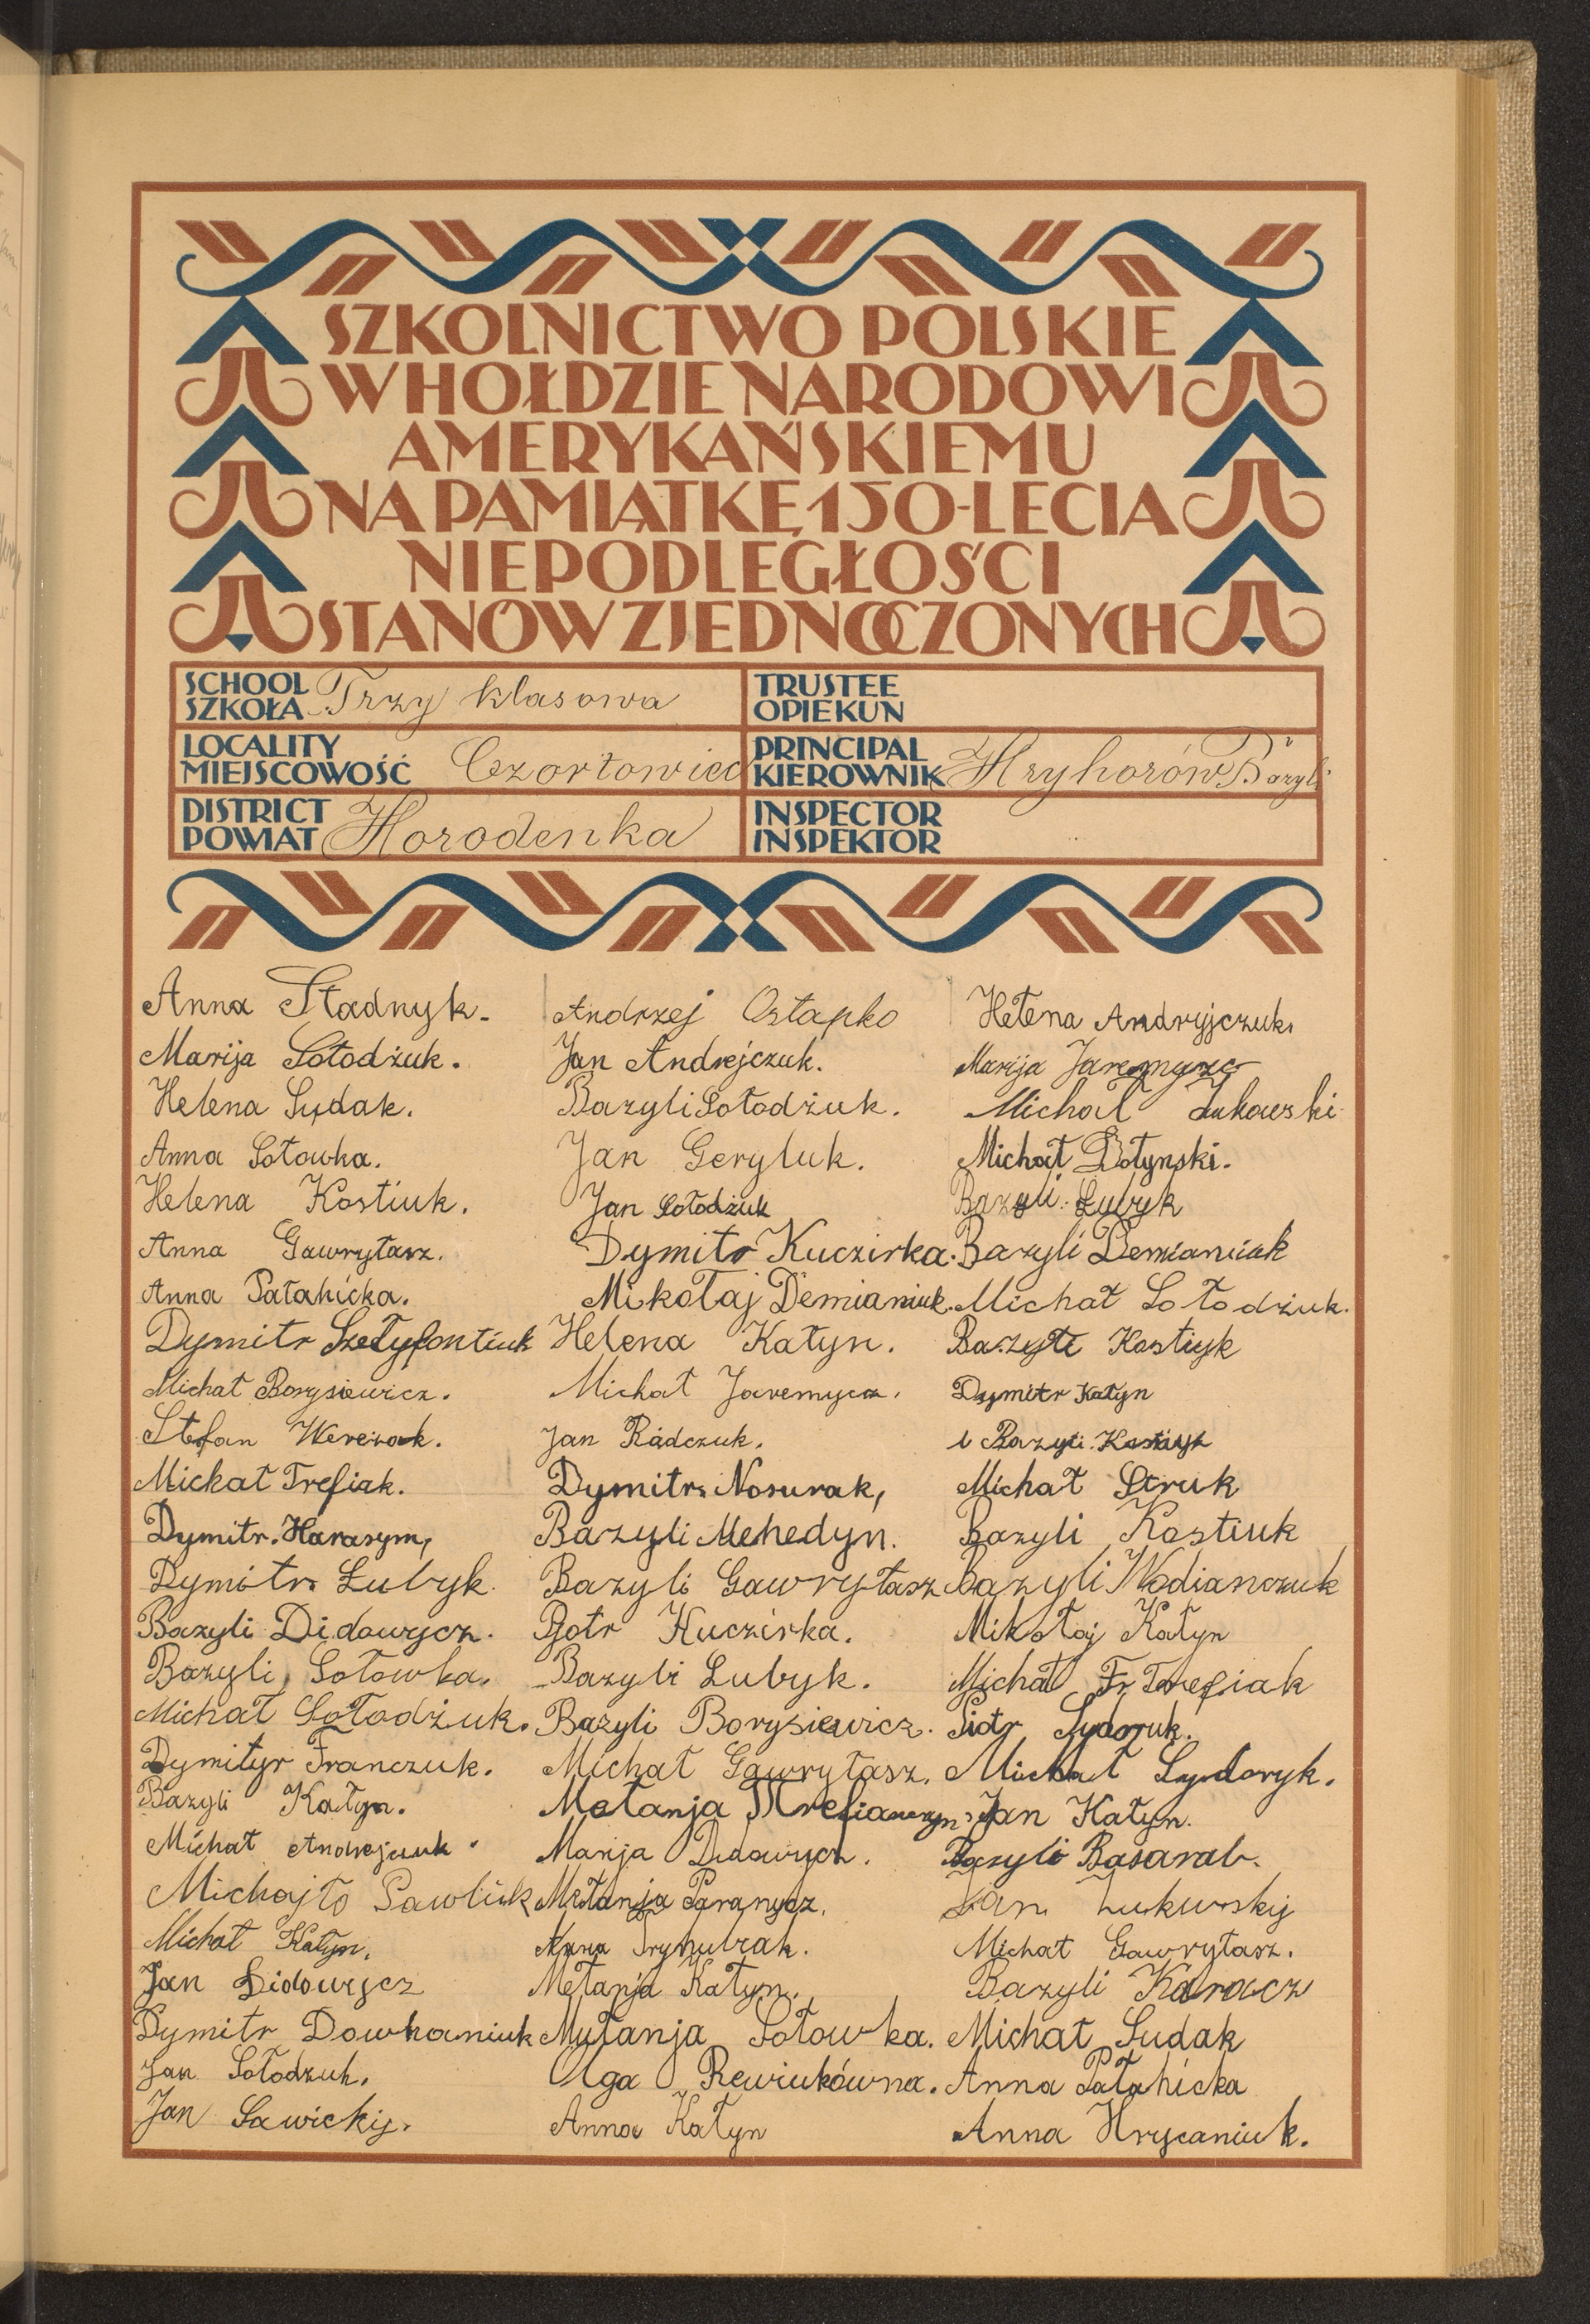 SZKOLNICTWO POLSKIE
W HOŁDZIE NARODOWI
AMERYKAŃSKIEMU
NA PAMIĄTKĘ 150-LECIA
NIEPODLEGŁOŚCI
STANÓW ZJEDNOCZONYCH
SCHOOL
SZKOŁA Trzy klasowa
TRUSTEE
OPIEKUN
LOCALITY
MIEJSCOWOŚĆ Czortowiec
PRINCIPAL
KIEROWNIK Hryhorów Bazyli
DISTRICT
POWIAT Horodenka
INSPECTOR
INSPEKTOR
Anna Stadnyk.
Marija Sołodżuk.
Helena Sudak.
Anna Sołowka.
Helena Kostiuk.
Anna Gawryłasz.
Anna Pałahicka.
Dymitr
Michał Borysiewicz.
Stefan
Michał Trefiak.
Dymitr. Harasym,
Dymitr. Łubyk.
Bazyli Didowycz.
Bazyli Sołowka.
Michał Sołodżuk.
Dymityr Franczuk.
Bazyli Kałyn.
Michał Andrejczuk.
Michajło Pawluk
Michał Kałyn.
Jan Didowycz
Dymitr Dowhaniuk
Jan Sołodzuk.
Jan Sawickij.
Andrzej Ostapko
Jan Andrejczuk.
Bazyli Sołodżuk.
Jan Geryluk.
Jan Sołodżuk
Dymitr Kuczirka.
Mikołaj Demianiuk.
Helena Kałyn.
Michał Jaremycz.
Jan Radczuk.
Dymitr. Nosurak,
Bazyli Mehedyn.
Bazyli Gawryłasz
Pjotr Kuczirka.
Bazyli Łubyk.
Bazyli Borysiewicz.
Michał Gawryłasz.
Mełanja
Marija Didowycz.
Mełanja Paranycz.
Anna
Mełanja Kałyn.
Myłanja Sołowka.
Olga Rewiukówna.
Anna Kałyn
Hełena Andryjczuk.
Marija Jaremycz
Michał Żukowski
Michał Dołynski.
Bazyli. Łubyk
Bazyli Demianiuk
Michał Sołodżuk.
Bazyli Kostiyk
Dymitr Kałyn
Bazyli. Kostiyk
Michał Struk
Bazyli Kostiuk
Bazyli Wodianczuk
Mikołaj Kałyn
Michał Fr Trefiak
Piotr Sydoruk.
Michał Sydoryk.
Jan Kałyn.
Bazyli Basarab.
Jan
Michał Gawryłasz.
Bazyli Karacz
Michał Sudak
Anna Pałahicka
Anna Hrycaniuk.